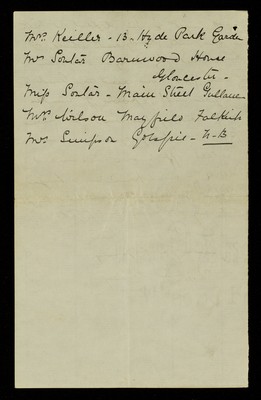 Mrs. Keiller - 13 - Hyde Park Garden
Mrs Soutar Barnwood House
Gloucester -
Miss Soutar - Main Street Gullane -
Mrs. Wilson Mayfield Falkirk
Mrs Simpson Golspie - N-B